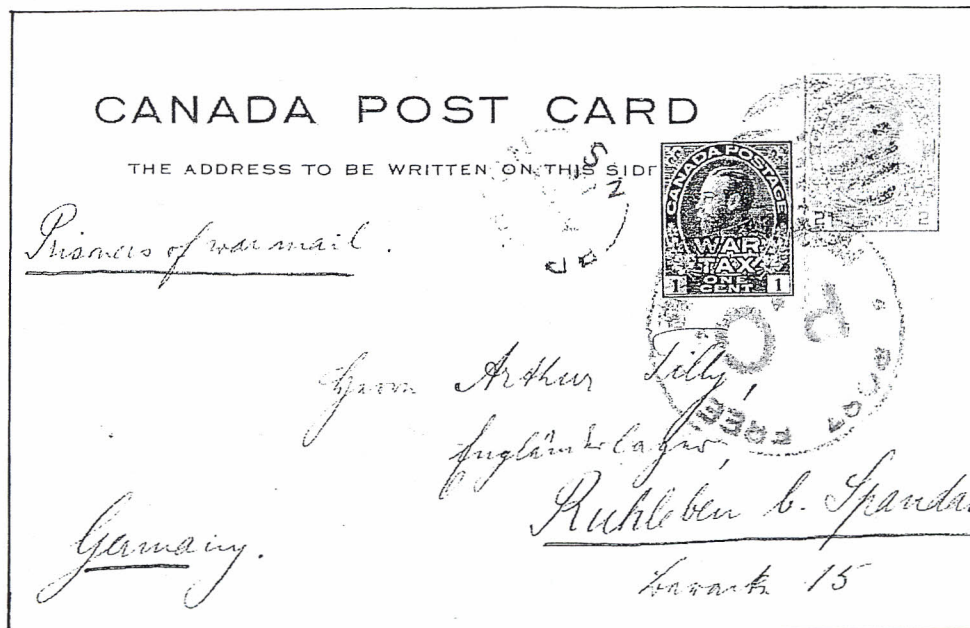 CANADA POST CARD
THE ADDRESS TO BE WRITTEN ON THIS SIDE
CANADA POSTAGE
WAR
TAX
ONE
CENT
1 1
2 2
Prisoners of war mail.
P.O.
PORT FREE
Herrn Arthur Tilly,
Engländerlager,
Ruhleben b. Spandau
Germany.
Baracke 15